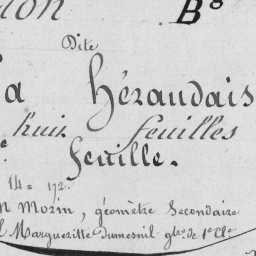 ion B⁸
Dite
la Héraudais
huit feuilles
feuille.
14 = 172.
n Morin, géomètre Secondaire
l Margueritte Dumesnil g^bre de 1^e Cl^e